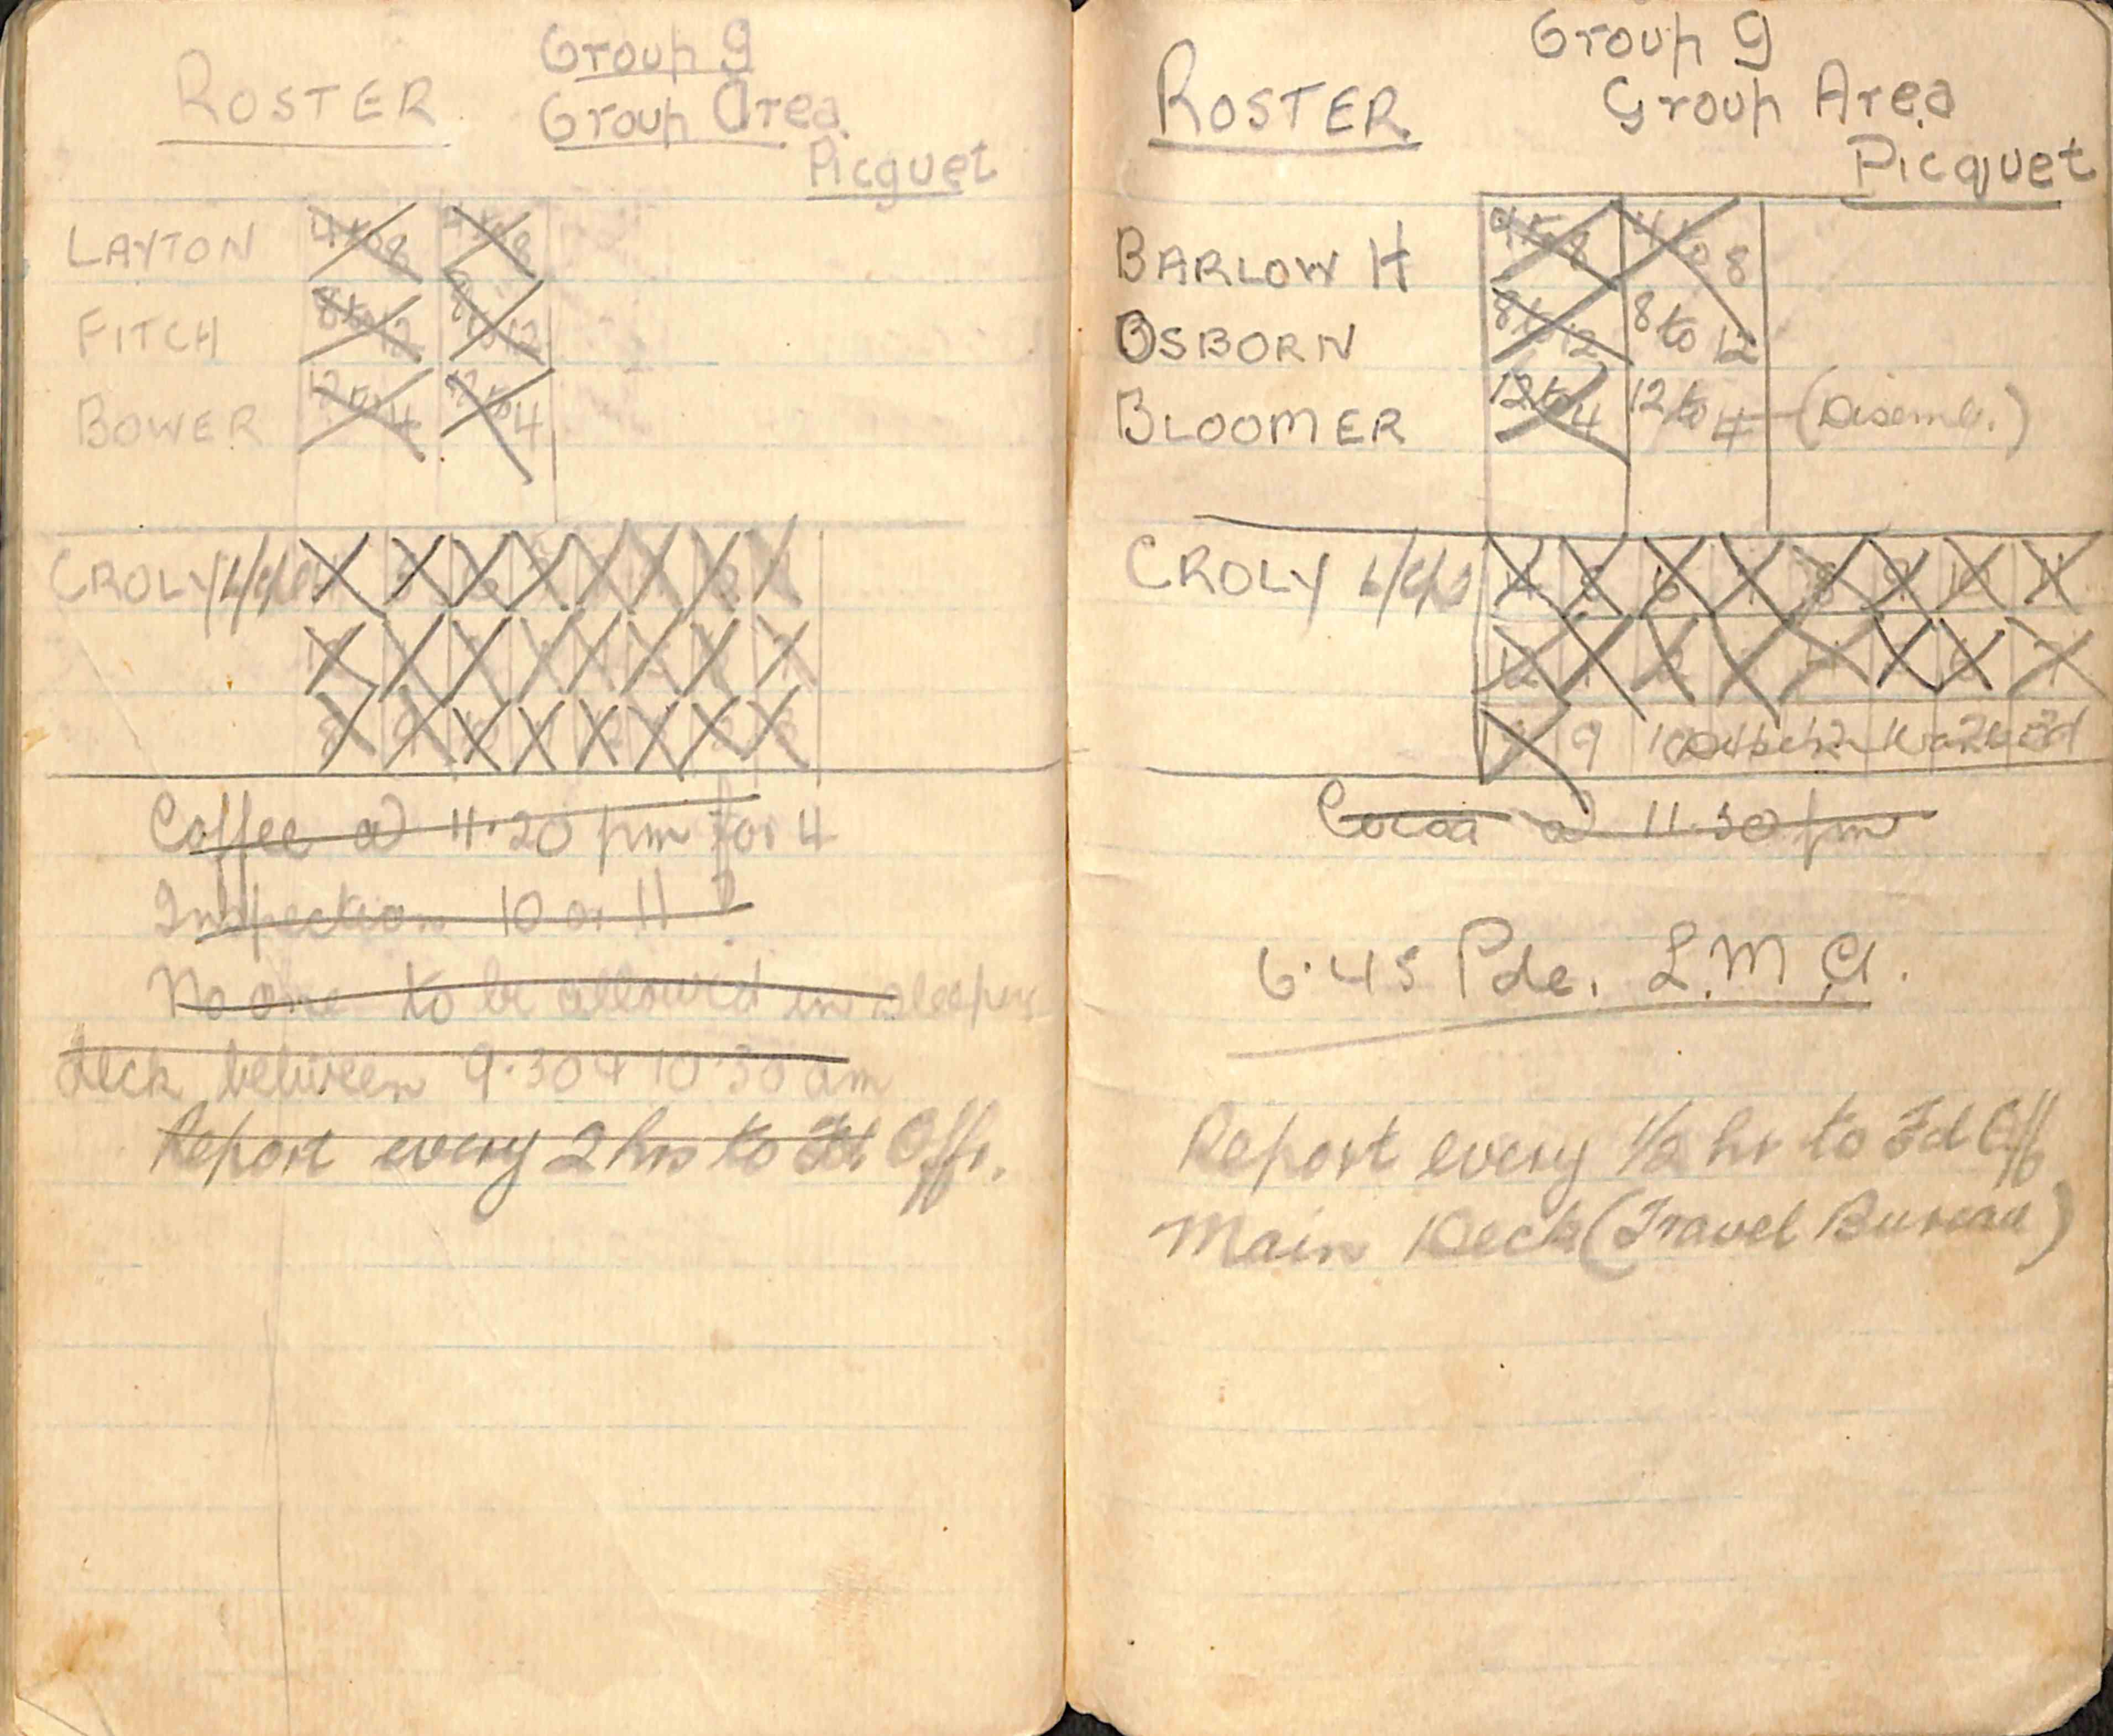 ROSTER
Group 9
Group Area
Picquet
LAYTON 4 to 8 4 to 8
FITCH 8 to 12 8 to 12
BOWER 12 to 4 12 to 4
CROLY
Coffee @ 11.20 pm for 4
Inspection 10 or 11 ?
No one to be allowed in sleeping
deck between 9.30 & 10.30 am
Report every 2 hrs to Offr.
ROSTER
Group 9
Group Area
Picquet
BARLOW H 4 to 8 4 to 8
OSBORN 8 to 12 8 to 12
BLOOMER 12 to 4 12 to 4 (Disemb.)
CROLY 4 5 6 7 8 9 10 11
12 1 2 3 4 5 6 7
8 9 10
Cocoa @ 11.30 pm
6.45 Pde. L.M.A.
Report every 1/2 hr to Off
Main Deck (Travel Bureau)